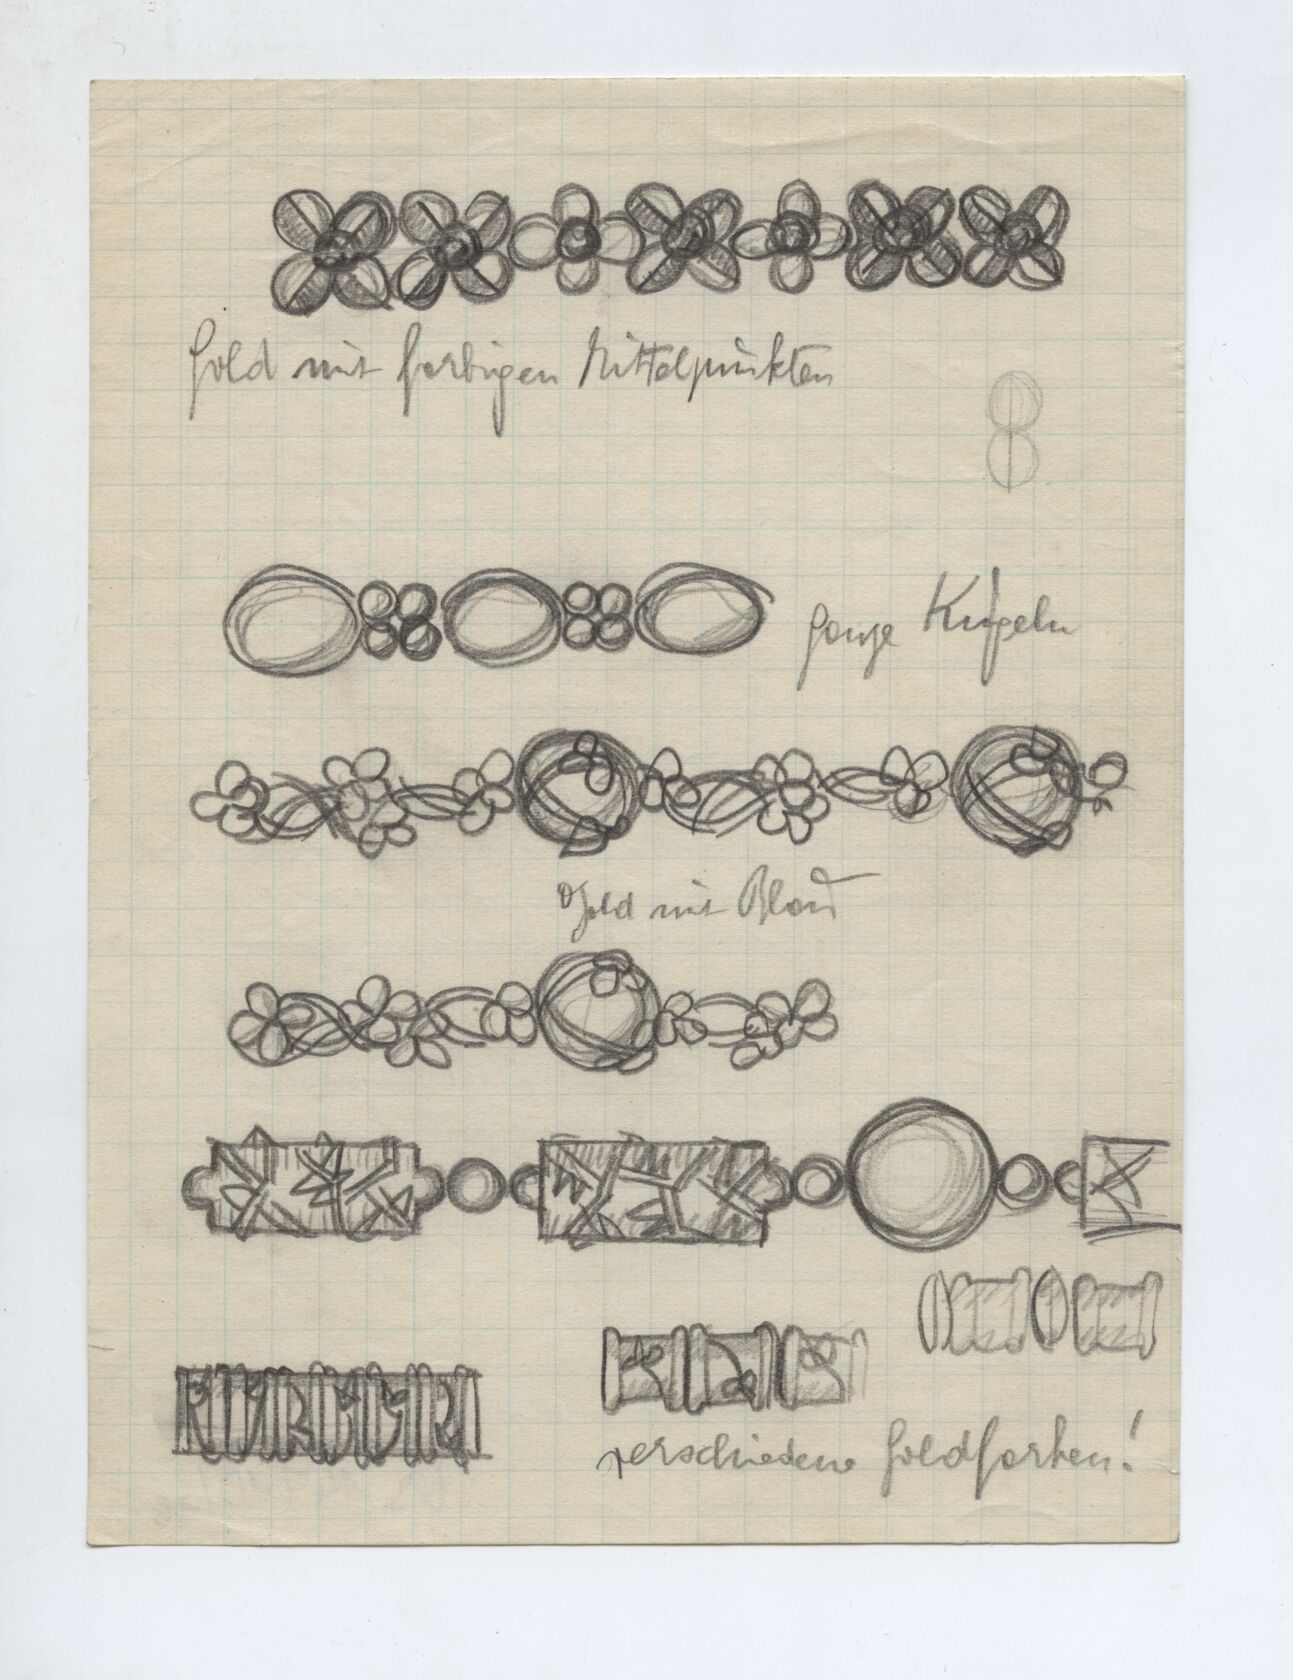 Gold mit farbigen Mittelpunkten
ganze Kugeln
Gold mit Blau
verschiedene Goldfarben!